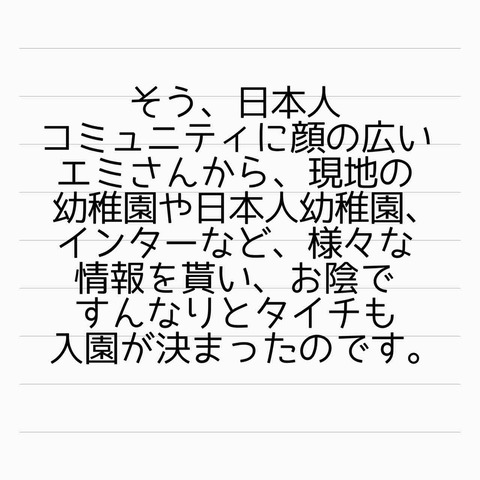 そう、日本人
コミュニティに顔の広い
エミさんから、現地の
幼稚園や日本人幼稚園、
インターなど、様々な
情報を貰い、お陰で
すんなりとタイチも
入園が決まったのです。